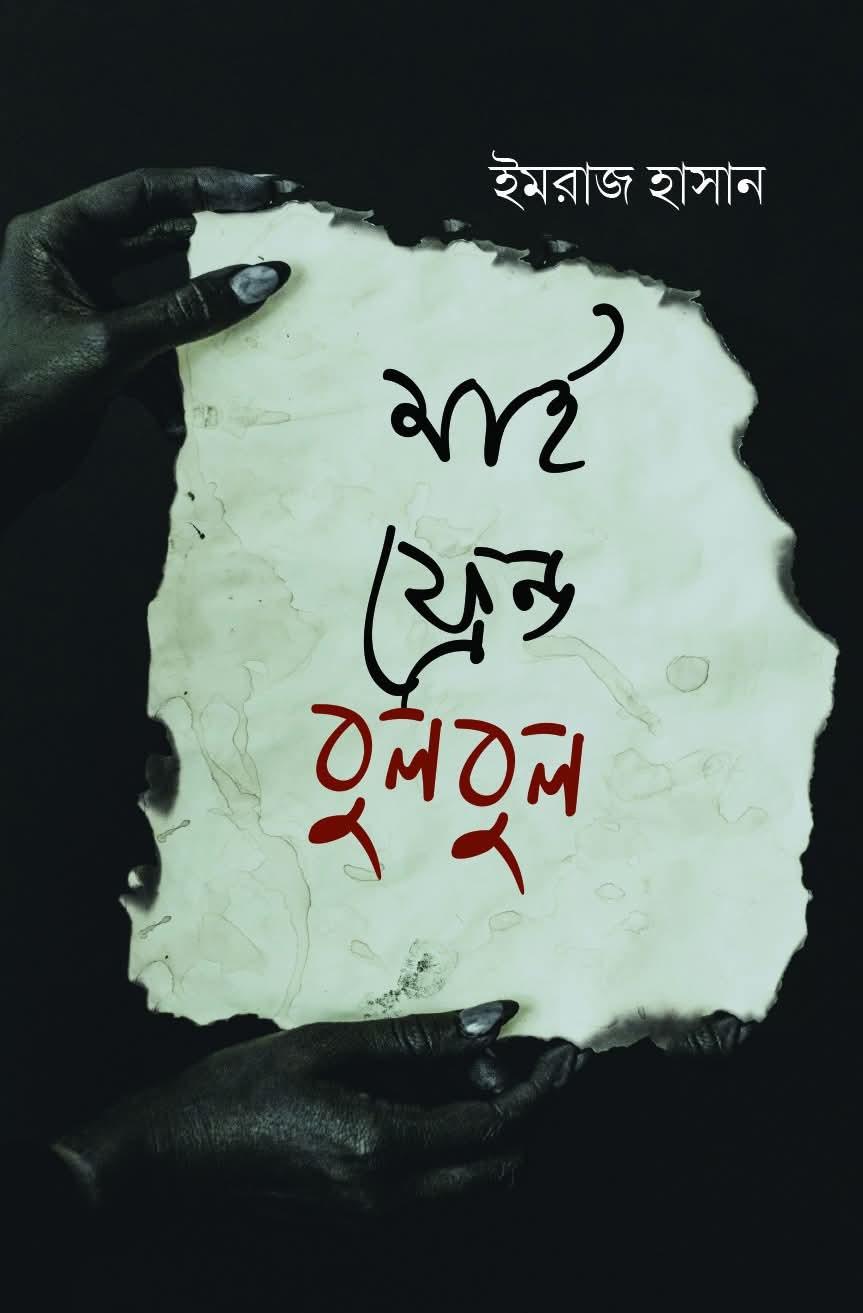 ইমরাজ হাসান
মাই
ফ্রেন্ড
বুলবুল